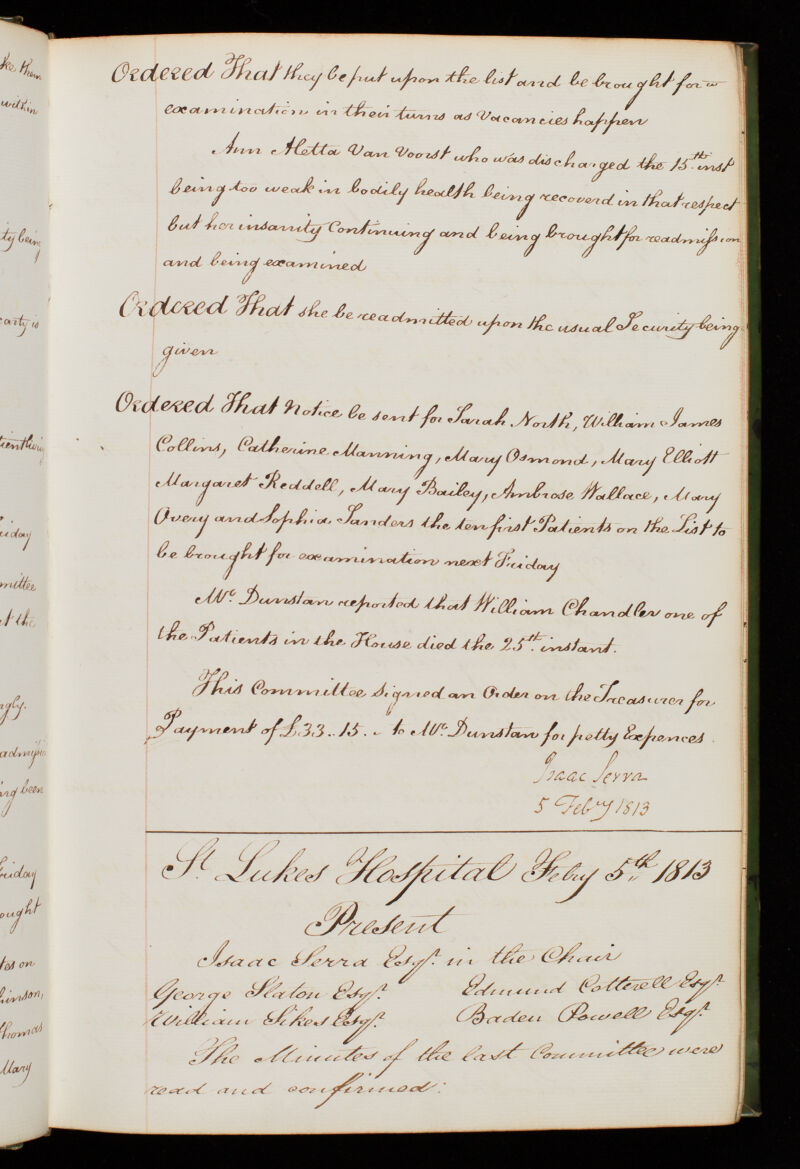 ke them
within
ty being
arty is
Friday
mittee
t the
ngly.
admissi
ing been
Friday
ought
tes on
kinson,
Thomas
Mary
Ordered That they be put upon the list and be brought for
examination in their turns as Vacancies happen
Ann Aletta Van Voorst who was discharged the 15th inst
being too weak in bodily health being recoverd in that respect
but her insanity Continuing and being brought for readmission
and being examined
Ordered That she be readmitted upon the usual Security being
given
Ordered That Notice be sent for Sarah North, William James
Collins, Catherine Manning, Mary Osmond, Mary Elliott
Margaret Reddell, Mary Bailey, Ambrose Wallace, Mary
Overy and Sophia Sanders the ten first Patients on the List to
be brought for examination next Friday
Mr. Dunstan reported that William Chandler one of
the Patients in the House died the 25th. instant.
This Committee Signed an Order on the Treasurer for
Payment of £33..15.- to Mr. Dunstan for petty Expences.
Isaac Serra
5 Febry 1813
St. Lukes Hospital Feby 5th 1813
Present
Isaac Serra Esqr. in the Chair
George Slaton Esqr. Edmund Cotterell Esqr.
William Sikes Esqr. Baden Powell Esqr.
The Minutes of the last Committee were
read and confirmed: